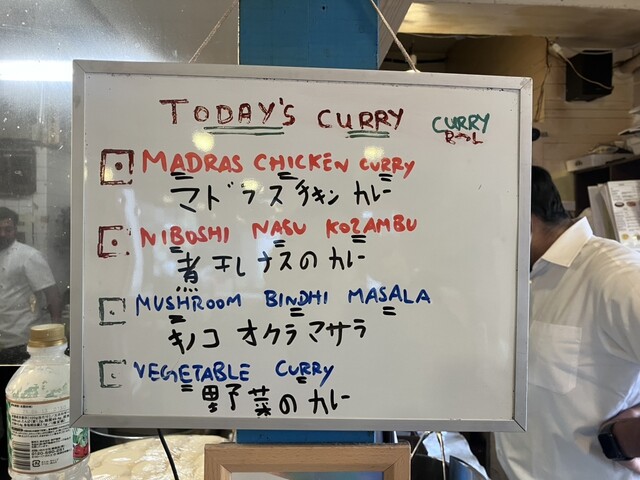 TODAY'S CURRY
CURRY
MADRAS CHICKEN CURRY
マドラスチキン カレー
NIBOSHI NASU KOZAMBU
煮干しナスのカレー
MUSHROOM BINDHI MASALA
キノコ オクラマサラ
VEGETABLE CURRY
野菜のカレー